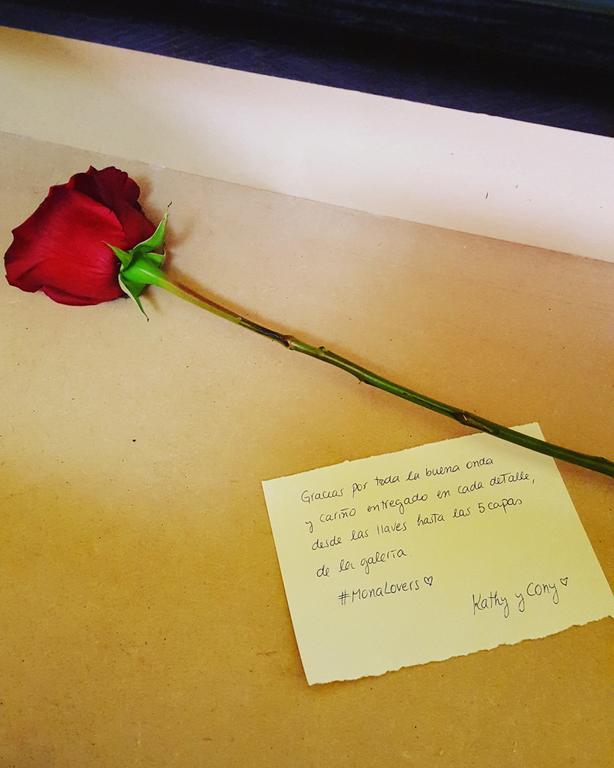 Gracias por toda la buena onda
y cariño entregado en cada detalle,
desde las llaves hasta las 5 capas
de la galería.
#MonaLovers ♡
Kathy y Cony ♡